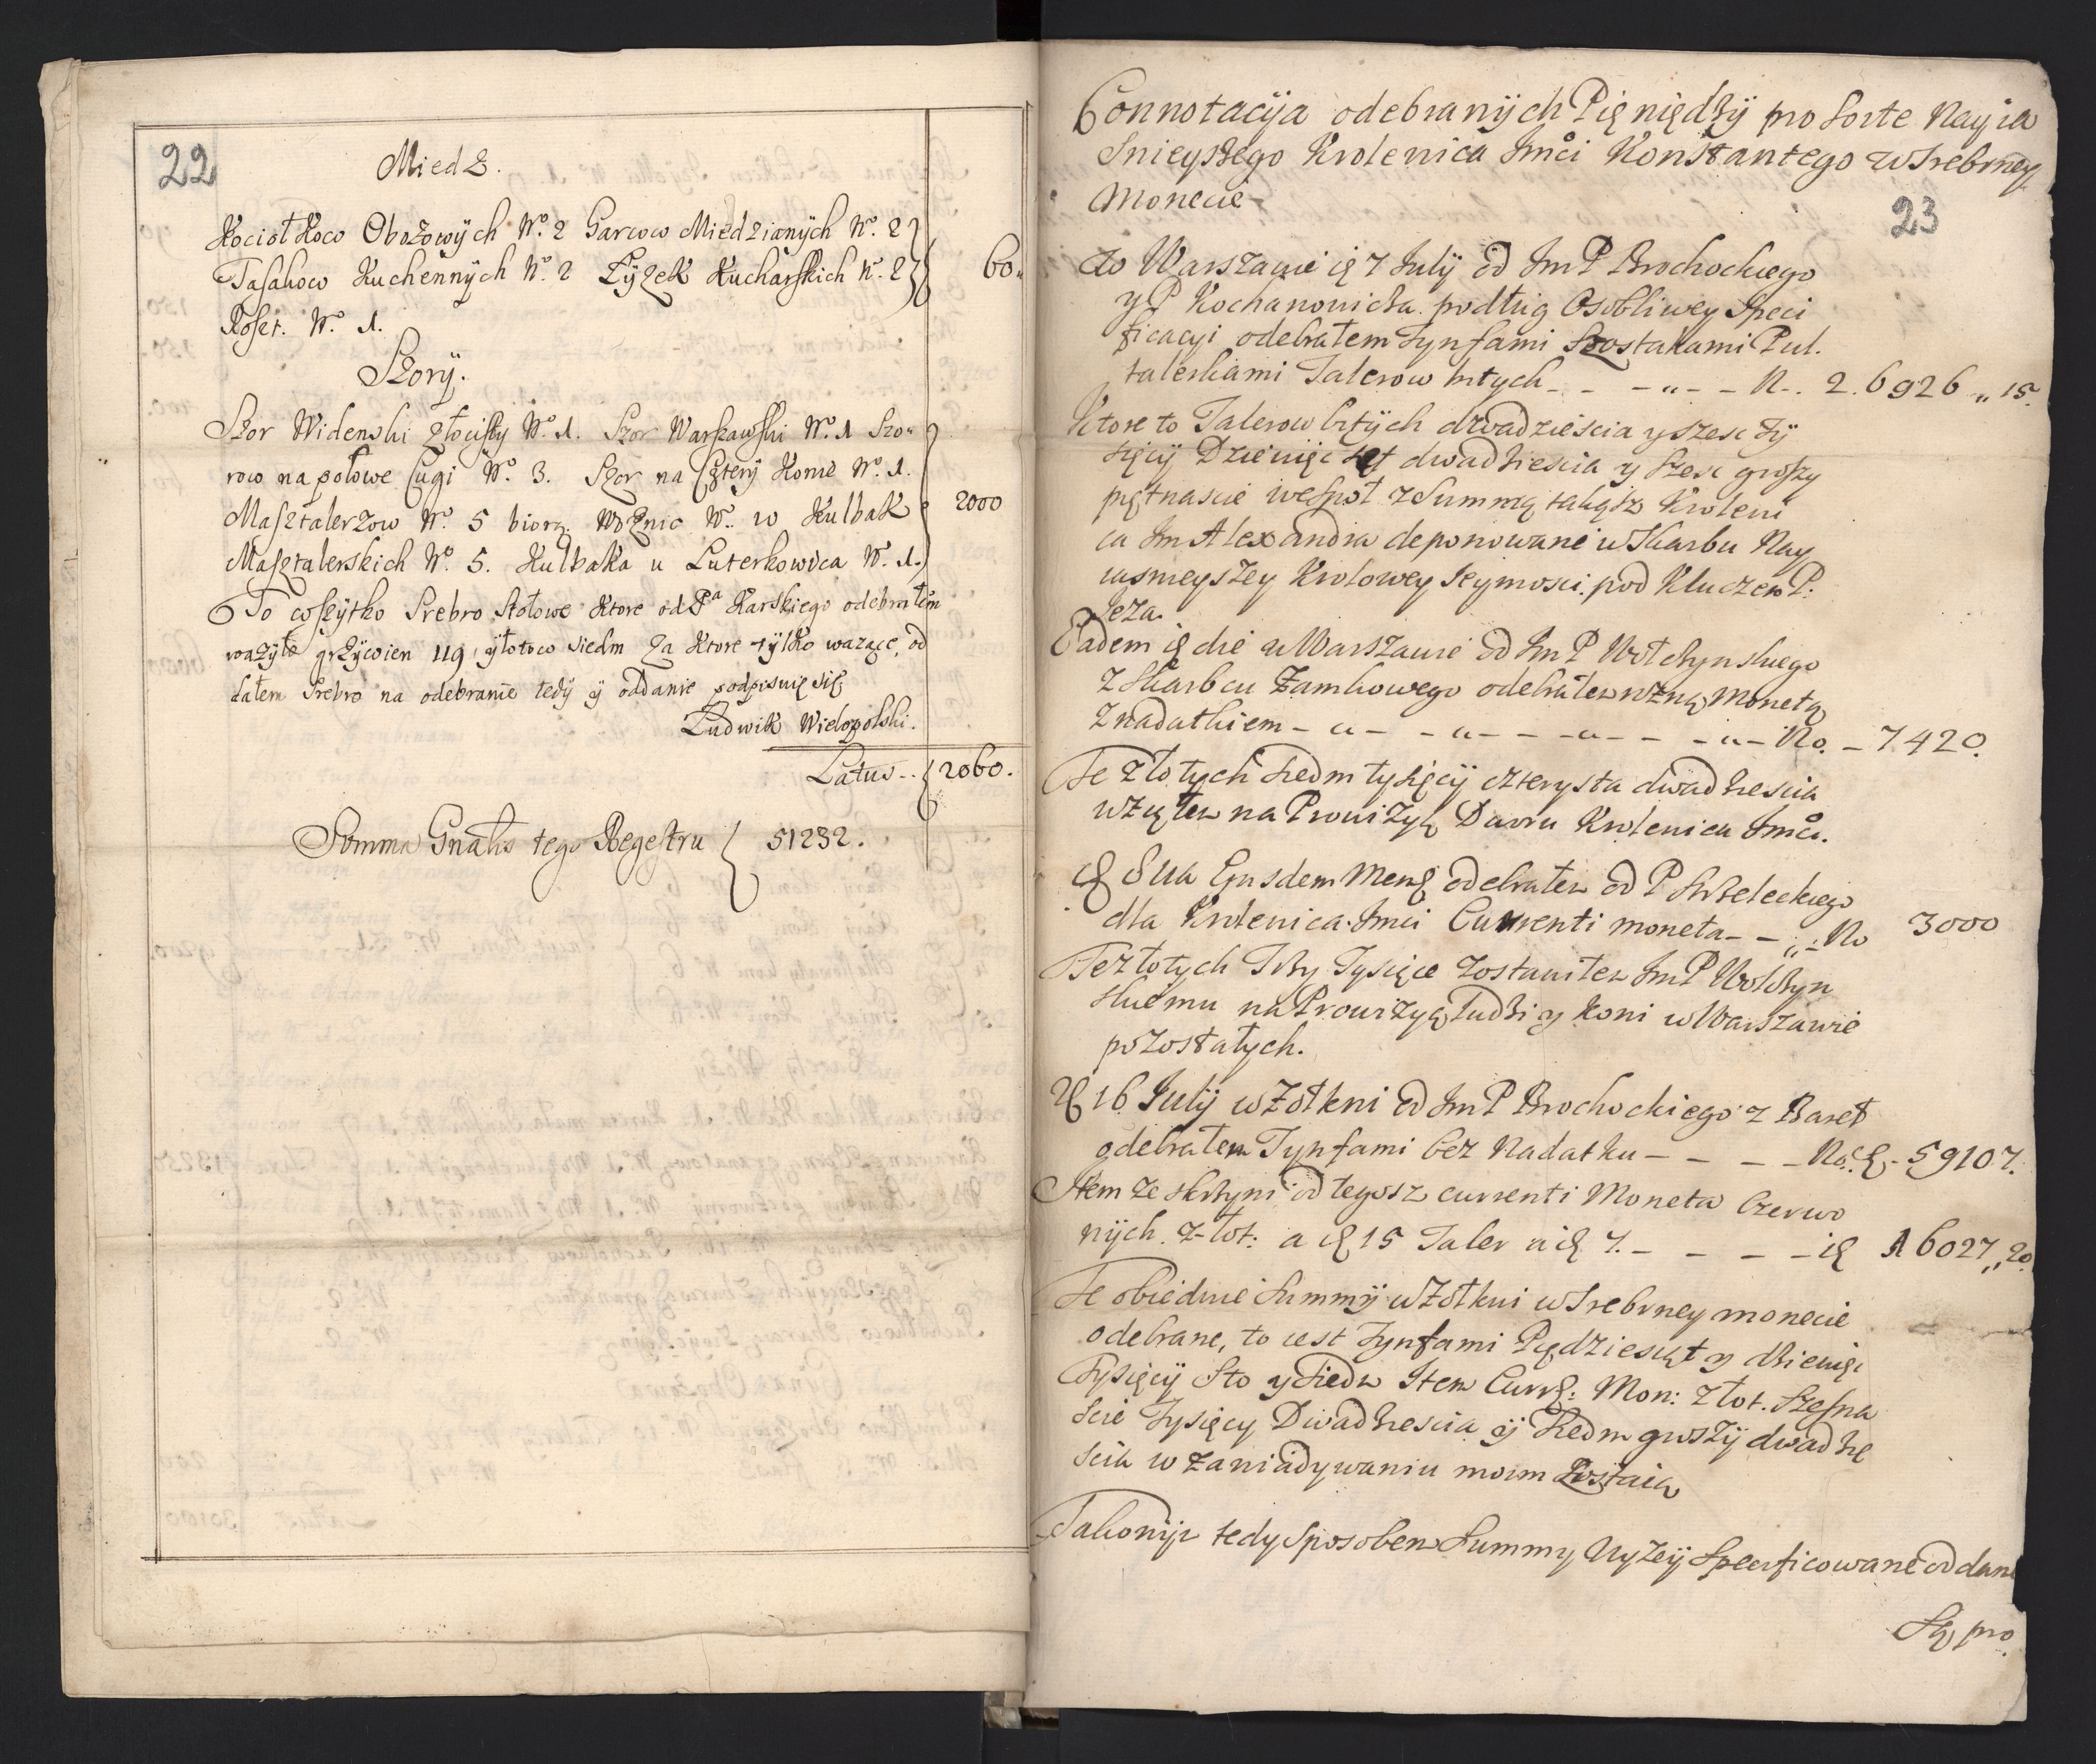 22
Miedz.
Kociołkow Obozowych No. 2 Garcow Miedzianÿch No. 2
Tasakow Kuchennÿch No. 2 Łÿzek Kucharskich No. 2 60
Roszt. No. 1.
Szorÿ.
Szor Widenski złocisty No. 1. Szor Warszawski No. 1 Szo-
row na połowe Cugi No. 3. Szor na Czterÿ Konie No. 1.
Masztalerzow No. 5 biorą. Woznic No. 10 Kulbak 2000
Masztalerskich No. 5. Kulbaka u Luterkowica No. 1.
To wszÿtko Srebro Stołowe Ktore od Pa Karskiego odebrałem
wazÿło grzÿwien 119 ÿ łotow siedm Za Ktore tÿlko wazące, od
dałem Srebro na odebranie tedÿ ÿ oddanie podpisuię się
Ludwik Wielopolski.
Latus 2060.
Summa Gnalis tego Regestru 51232.
Connotacÿa odebranÿch Pięniędzÿ pro sorte Nayia
snieyszego Krolewica Jmci Konstantego w Srebrney
Monecie
23
w Warszawie 7 Julÿ od Jm P Brochockiego
y P Kochanowicza podług Osobliwey Speci
ficacyi odebrałem Tynfami Szostakami Puł
talerkami Talerow bitych - - - " - - N. 2.6926 " 15.
Ktore to Talerow bitÿch dwadziescia y szesc tÿ
sięcÿ Dziewięc set dwadziescia y szesc groszy
piętnascie wespoł z Summą takąsz Krolewi
ca Jm Alexandra deponowane w Skarbu Nay
iasnieyszey Krolowey Jeymosci pod Kluczem P.
Jeza
Eadem die w Warszawie od Jm P Wołczynskiego
z Skarbcu Zamkowego odebrałem rozną Monetą
z nadatkiem - " - - " - - - " - - - " - No. - 7420.
Te złotych siedm tysięcÿ czterysta dwadziescia
wziąłem na Prowizyą Dworu Krolewica Jmci.
8va Eiusdem Mens odebrałem od P Strzeleckiego
dla Krolewica Jmci Currenti moneta - - " - No 3000
Te złotych Trzy Tysiące zostawiłem Jm P Wołczyn
skiemu na Prowizyą Ludzi y Koni w Warszawie
pozostałych.
16 Julÿ w Żołkwi od Jm P Brochockiego z Baset
odebrałem Tynfami bez Nadatku - - - - No. 59107.
Item ze skrzyni od tegosz currenti Moneta Czerwo
nÿch złot: a 15 Taler a 7. - - - - 16027 " 20
Te obiedwie Summÿ w Żołkwi w Srebrney monecie
odebrane, to iest Tynfami Pędziesiąt y dziewięc
Tysięcÿ Sto y Siedm Item Curr: Mon: złot. Szesna
scie Tysięcy Dwadziescia ÿ Siedm groszÿ dwadzie
scia w zawiadywaniu moim zostaią
Takowÿm tedy Sposobem Summy Wyżeÿ Specificowane oddane
Są pro